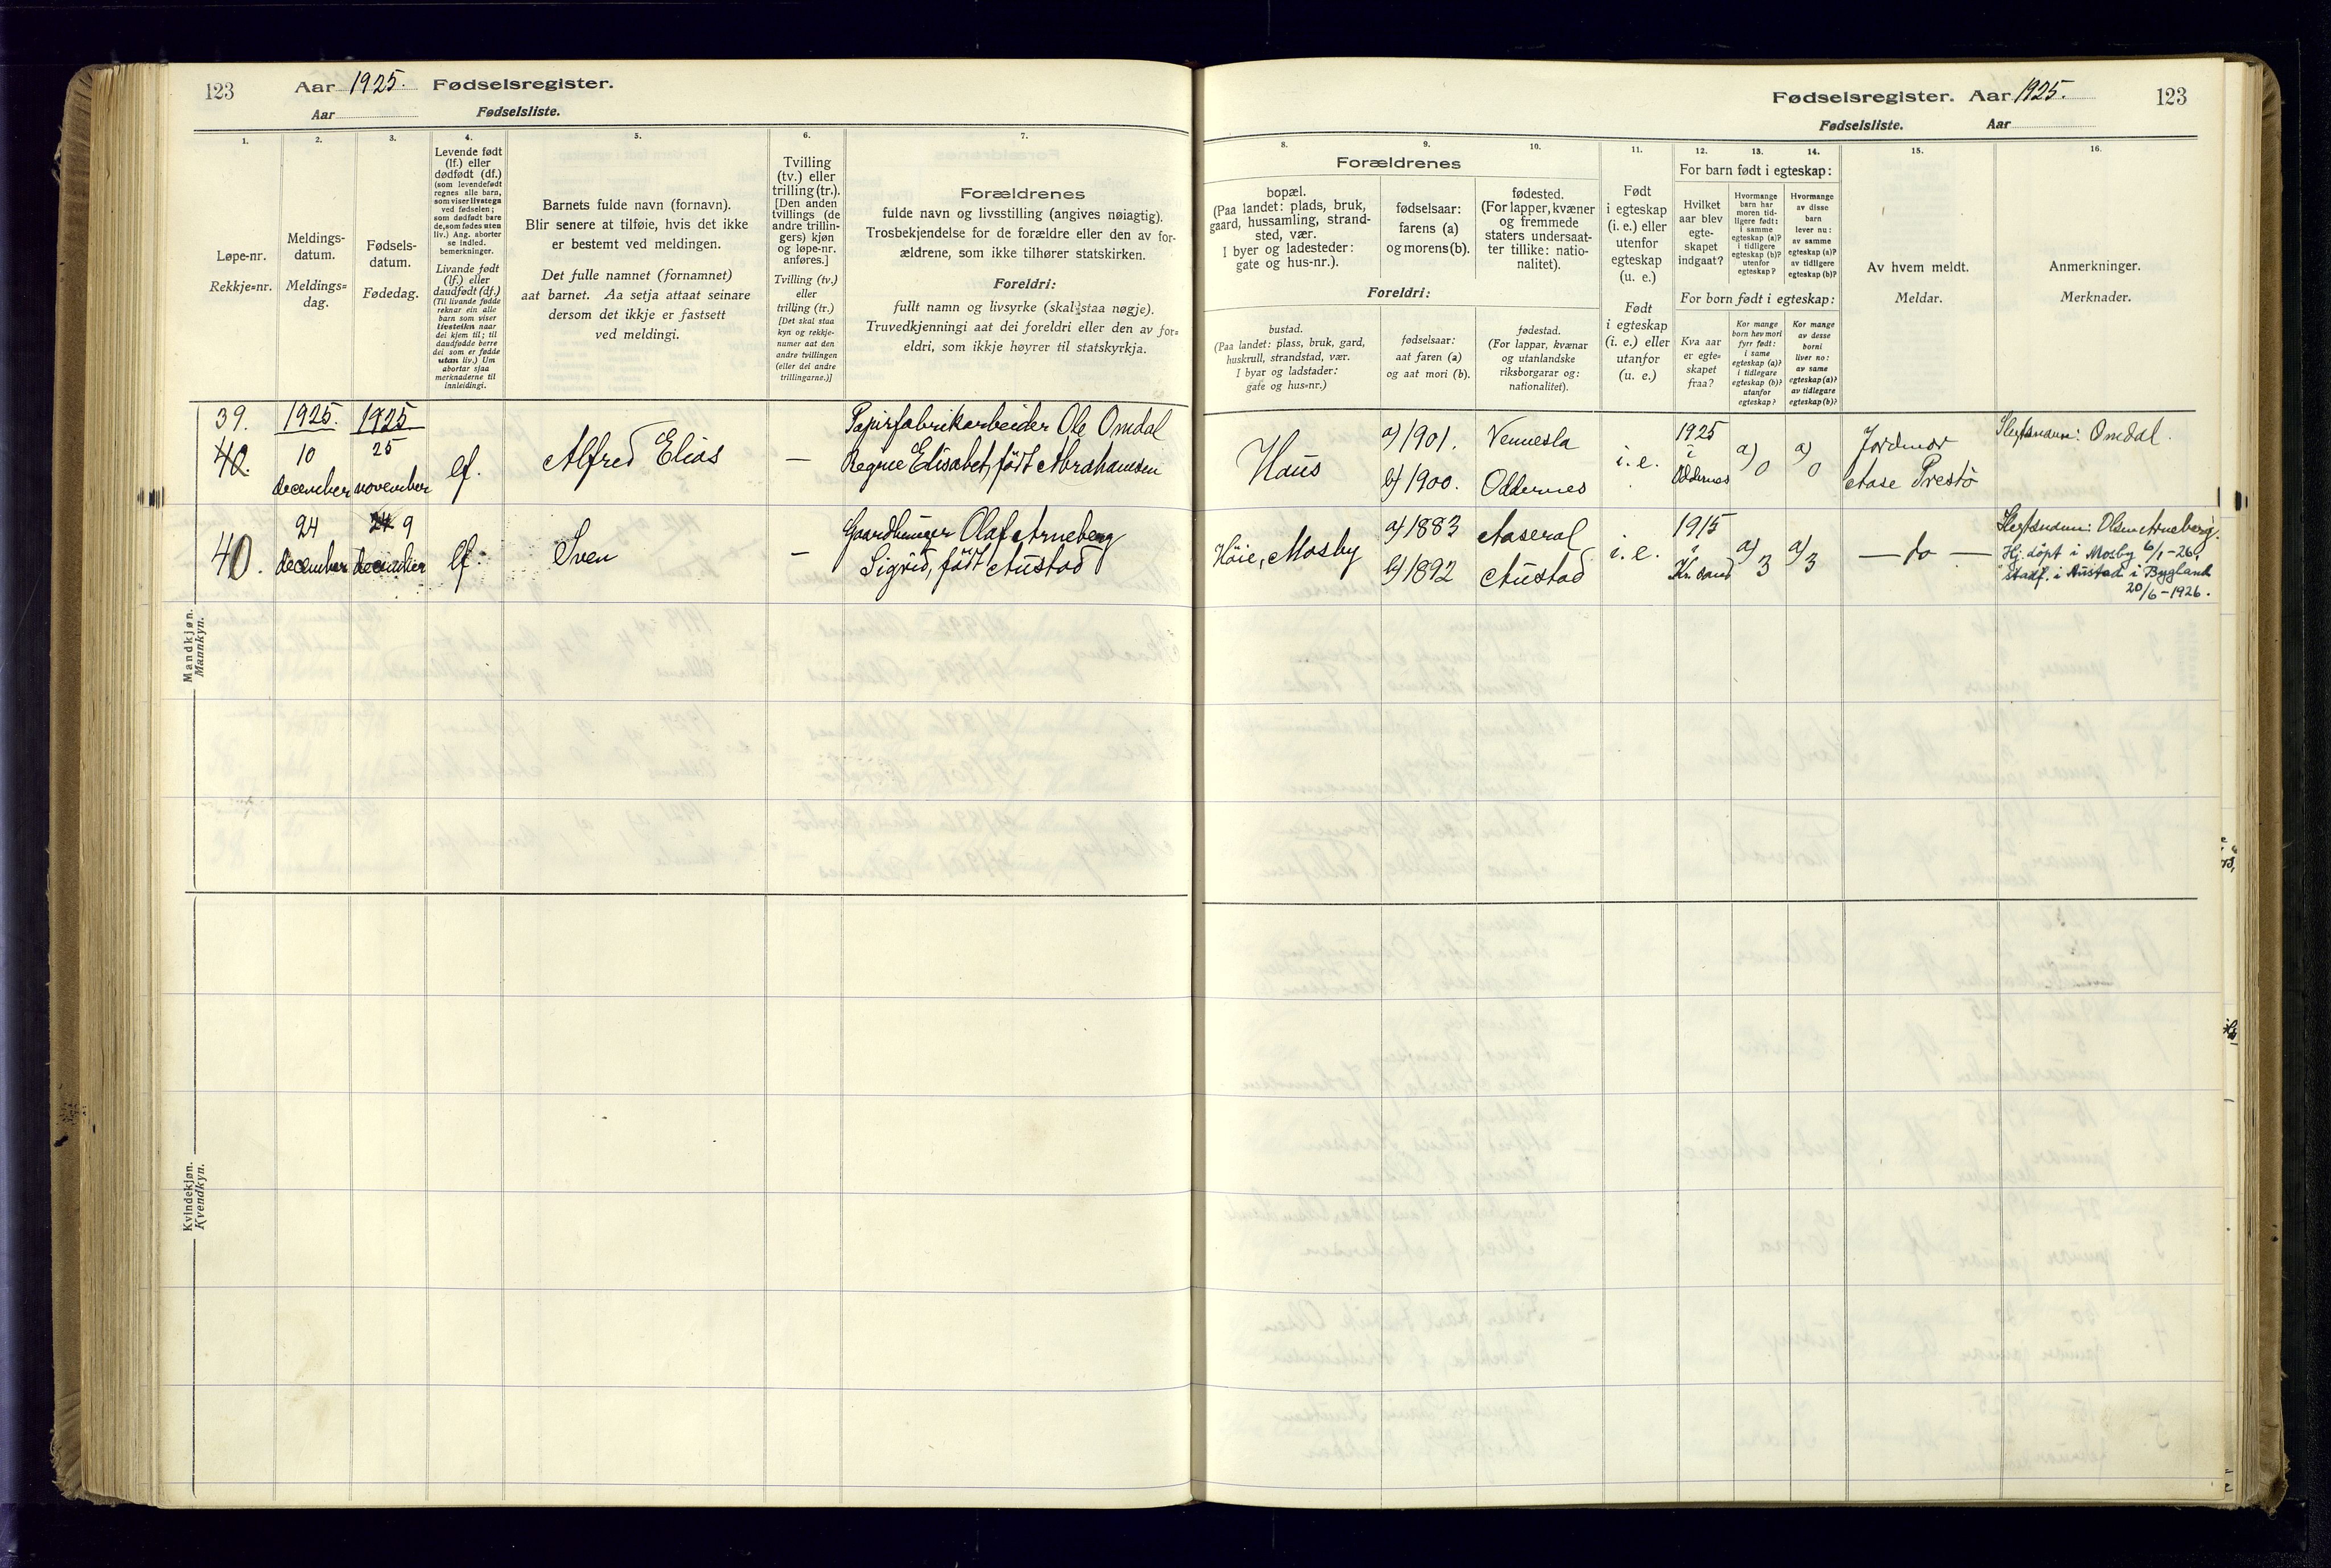 123
Aar 1925. Fødselsregister.
Aar Fødselsliste.
1.
2.
3.
4.
5.
6.
7.
Løpe-nr.
Rekkje=nr.
Meldings-
datum.
Meldings=
dag.
Fødsels-
datum.
Fødedag.
Levende født
(lf.) eller
dødfødt (df.)
(som levendefødt
regnes alle barn,
som viser livstegn
ved fødselen;
som dødfødt bare
de, som fødes uten
liv.) Ang. aborter
se indled.
bemerkninger.
Livande født
(lf.) eller
daudfødt (df.)
(Til livande fødde
reknar ein alle
barn som viser
livsteikn naar
dei kjem til; til
daudfødde berre
dei som er fødde
utan liv.) Um
abortar sjaa
merknaderne til
innleidingi.
Barnets fulde navn (fornavn).
Blir senere at tilføie, hvis det ikke
er bestemt ved meldingen.
Det fulle namnet (fornamnet)
aat barnet. Aa setja attaat seinare
dersom det ikkje er fastsett
ved meldingi.
Tvilling
(tv.) eller
trilling (tr.).
[Den anden
tvillings (de
andre trillin-
gers) kjøn
og løpe-nr.
anføres.]
Tvilling (tv.)
eller
trilling (tr.)
[Det skal staa
kyn og rekkje-
numer aat den
andre tvillingen
(eller dei andre
trillingarne.)]
Forældrenes
fulde navn og livsstilling (angives nøiagtig).
Trosbekjendelse for de forældre eller den av for-
ældrene, som ikke tilhører statskirken.
Foreldri:
fullt namn og livsyrke (skal staa nøgje).
Truvedkjenningi aat dei foreldri eller den av for=
eldri, som ikkje høyrer til statskyrkja.
39.
40.
1925.
10
december
1925
25
november
lf.
Alfred Elias
—
Papirfabrikarbeider Ole Omdal
Regine Elisabet, født Abrahamsen
40.
24
december
24 9
december
lf.
Sven
—
Gaardbruger Olaf Arneberg
Sigrid, født Austad
Mandkjøn.
Mannkyn.
Kvindekjøn.
Kvendkyn.
Fødselsregister. Aar 1925.
123
Fødselsliste. Aar
8.
9.
10.
11.
12.
13.
14.
15.
16.
Forældrenes
bopæl.
(Paa landet: plads, bruk,
gaard, hussamling, strand-
sted, vær.
I byer og ladesteder:
gate og hus-nr.).
fødselsaar:
farens (a)
og morens(b).
fødested.
(For lapper, kvæner
og fremmede
staters undersaat-
ter tillike: natio-
nalitet).
Foreldri:
bustad.
(Paa landet: plass, bruk, gard,
huskrull, strandstad, vær.
I byar og ladstader:
gate og hus=nr.)
fødselsaar:
aat faren (a)
og aat mori (b).
fødestad.
(For lappar, kvænar
og utanlandske
riksborgarar og:
nationalitet).
Født
i egteskap
(i. e.) eller
utenfor
egteskap
(u. e.)
Født
i egteskap
(i. e.) eller
utanfor
(u. e.)
For barn født i egteskap:
Hvilket
aar blev
egte-
skapet
indgaat?
Hvormange
barn har
moren tid-
ligere født:
i samme
egteskap (a)?
i tidligere
egteskap (b)?
utenfor
egteskap?
Hvormange
av disse
barn
lever nu:
av samme
egteskap (a)?
av tidligere
egteskap (b)?
For born født i egteskap:
Kva aar
er egte=
skapet
fraa?
Kor mange
born hev mori
fyrr født:
i same
egteskap (a)?
i tidlegare
egteskap (b)?
utanfor
egteskap?
Kor mange
av desse
borni
liver no:
av same
egteskap (a)?
av tidlegare
egteskap (b)?
Av hvem meldt.
Meldar.
Anmerkninger.
Merknader.
Haus
a) 1901.
b) 1900.
Vennesla
Oddernes
i. e.
1925
i
Oddernes
a) 0
a) 0
Jordmor
Aase Prestö
Slegtsnavn: Omdal.
Höie, Mosby
a) 1883
b) 1892
Aaseral
Austad
i. e.
1915
i
Kr. sand
a) 3
a) 3
— do —
Slegtsnavn: Olsen Arneberg.
Hj. döpt i Mosby 6/1-26.
Stadf. i Austad i Bygland
20/6-1926.